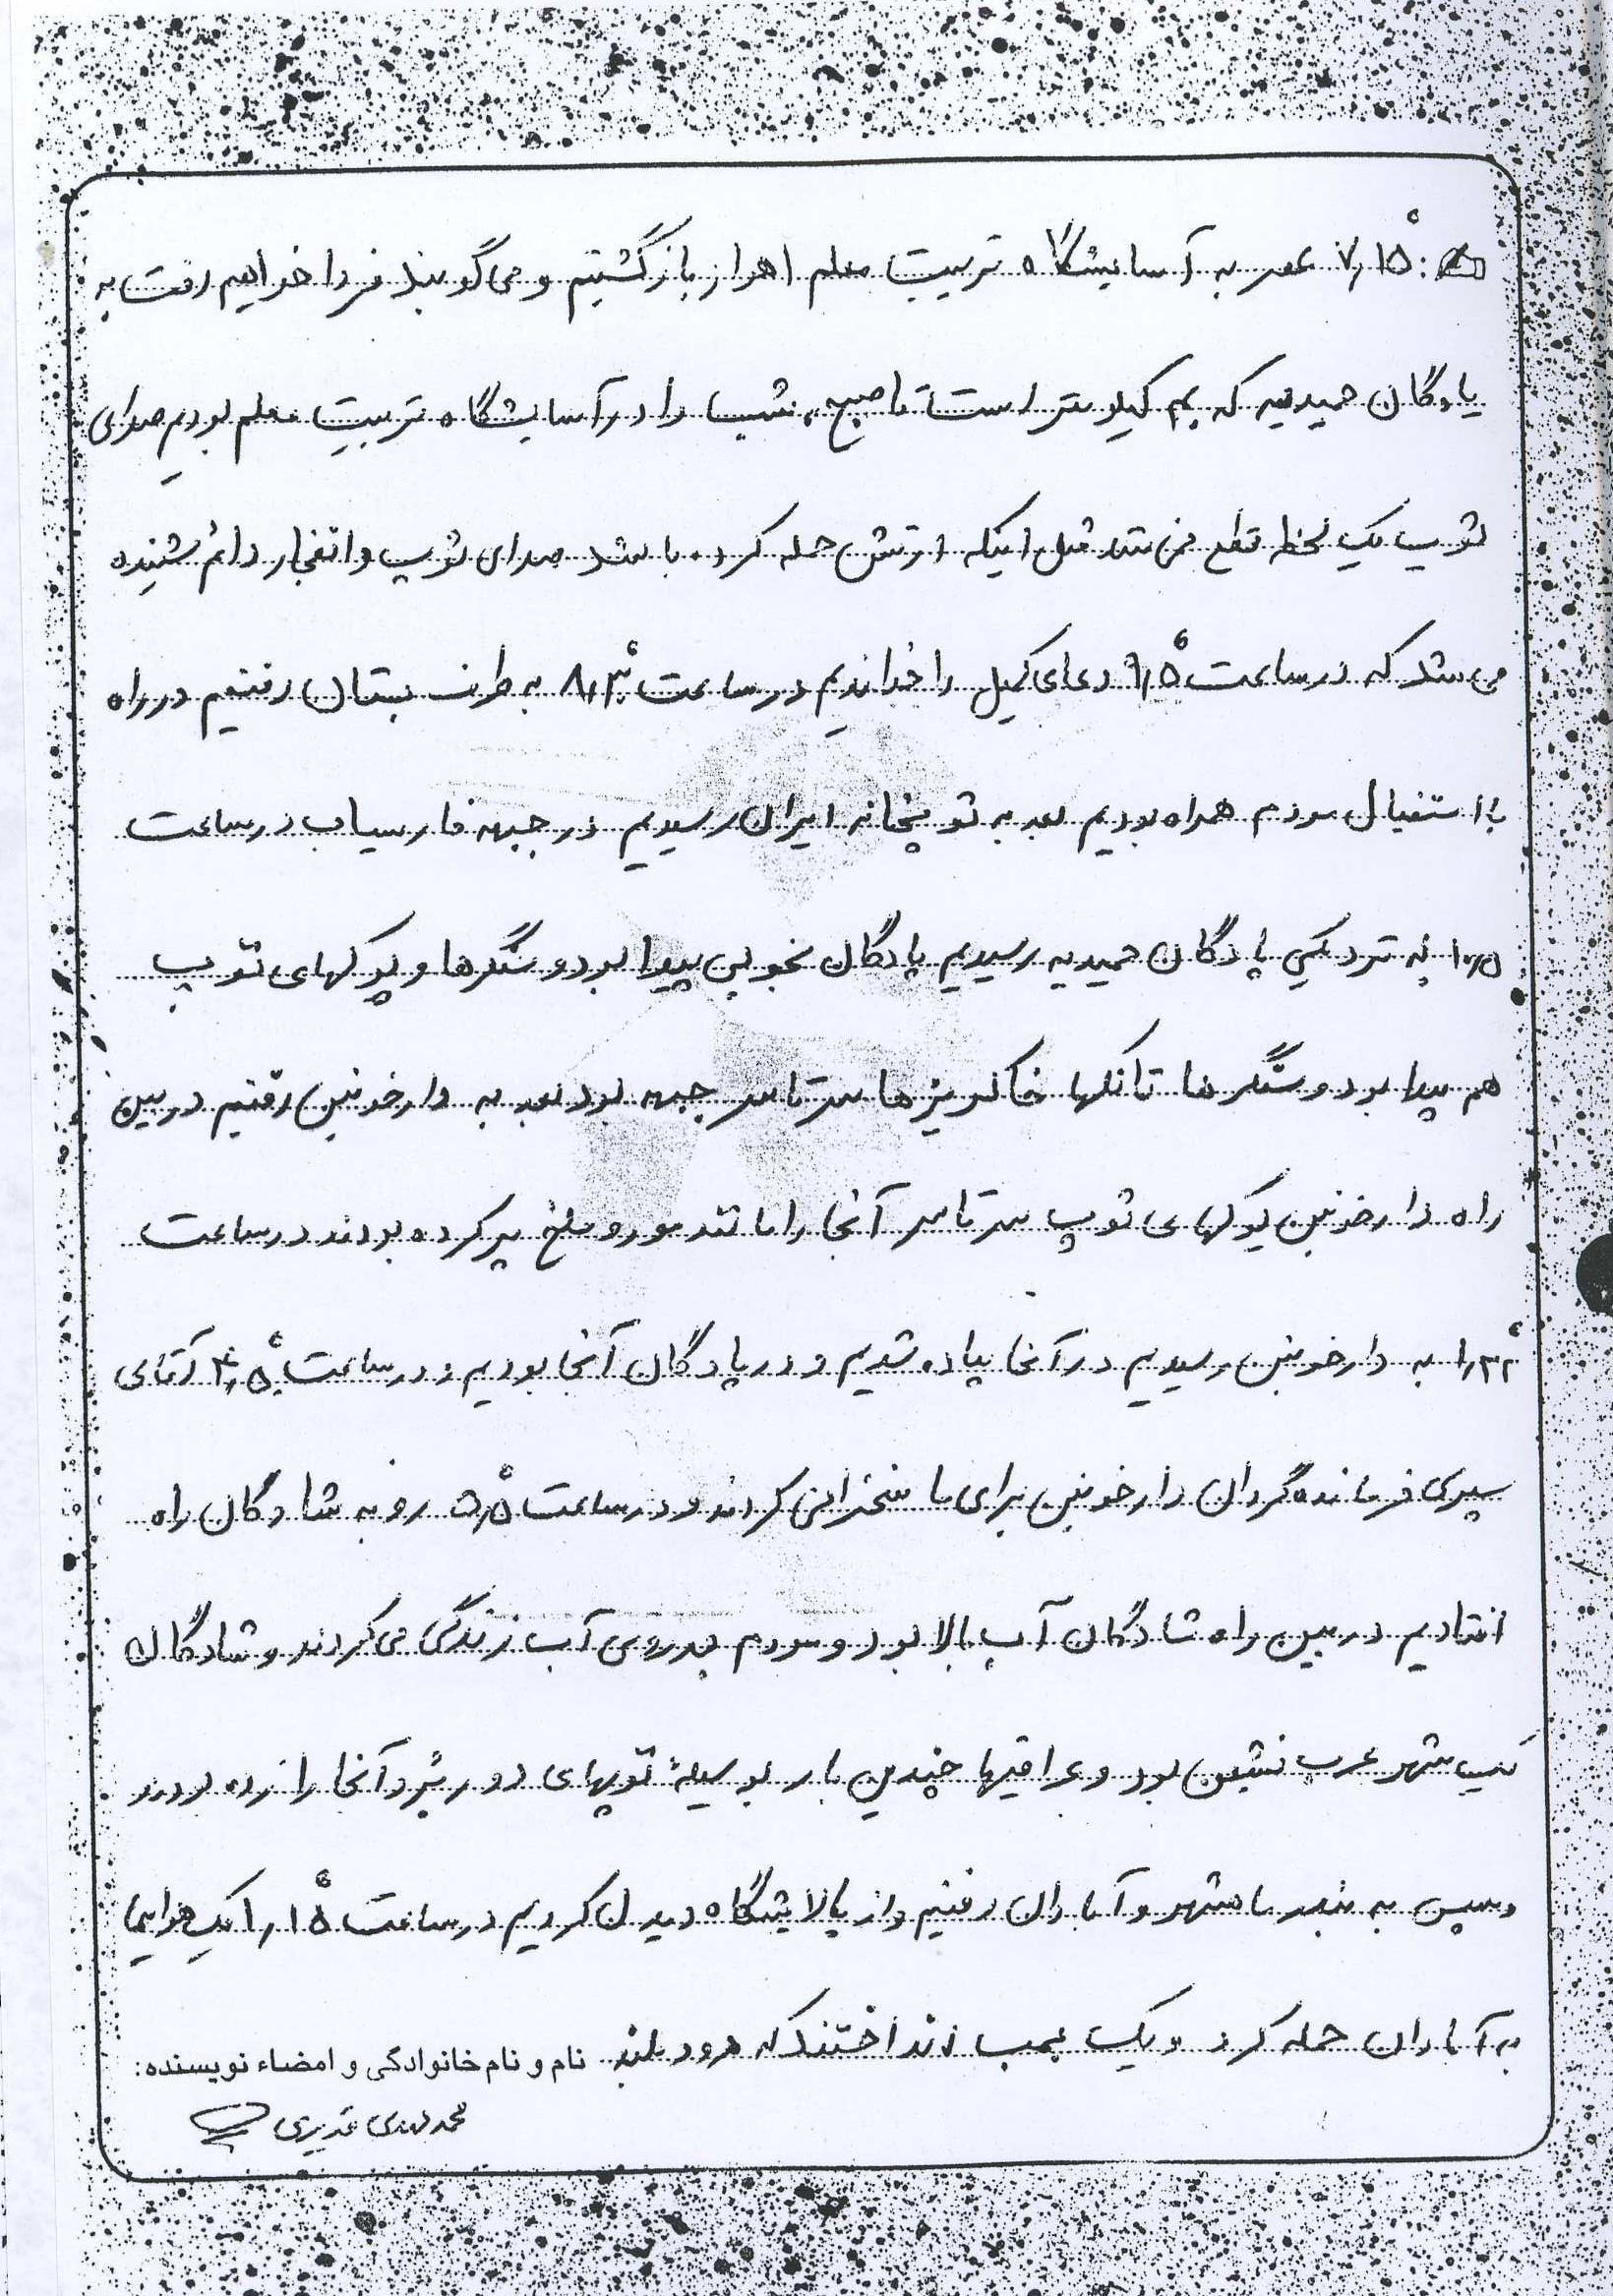 ۷/۱۵ عصر به آسایشگاه تربیت معلم اهواز بازگشتیم و می گویند فردا خواهیم رفت به
پادگان حمیدیه که کیلومتر است تا صبح، شب را در آسایشگاه تربیت معلم بودیم صدای
توپ یک لحظه قطع نمی شد مثل اینکه ارتش حمله کرده باشد صدای توپ و انفجار دائم شنیده
می شد که در ساعت ۶/۵ دعای کمیل را خواندیم در ساعت ۸/۳۰ به طرف بستان رفتیم در راه
با استقبال مردم همراه بودیم بعد به توپخانه ایران رسیدیم در جبهه فارسیاب در ساعت
۱۰/۵ به نزدیکی پادگان حمیدیه رسیدیم پادگان بخوبی پیدا بود و سنگرها و پوکهای توپ
هم پیدا بود و سنگرها تانکها خاکریزها سرتاسر جبهه بود بعد به دارخوئین رفتیم در بین
راه دارخوئین پوکهای توپ سرتاسر آنجا را مانند مور و ملخ پر کرده بودند در ساعت
۱/۳۲ به دارخوئین رسیدیم در آنجا پیاده شدیم و در پادگان آنجا بودیم و در ساعت ۴/۵ آقای
سپری فرمانده گردان دارخوئین برای ما سخنرانی کردند و در ساعت ۵/۵ رو به شادگان راه
افتادیم در بین راه شادگان آب بالا بود و مردم بر روی آب زندگی می کردند و شادگان
یک شهر عرب نشین بود و عراقیها چندین بار بوسیله توپهای دور برد آنجا را زده بودند
و سپس به بندر ماهشهر و آبادان رفتیم و از پالایشگاه دیدن کردیم در ساعت ۱/۱۵ یک هواپیما
به آبادان حمله کرد و یک بمب انداختند که دود بلند نام و نام خانوادگی و امضاء نویسنده:
محمد مهدی قدیری